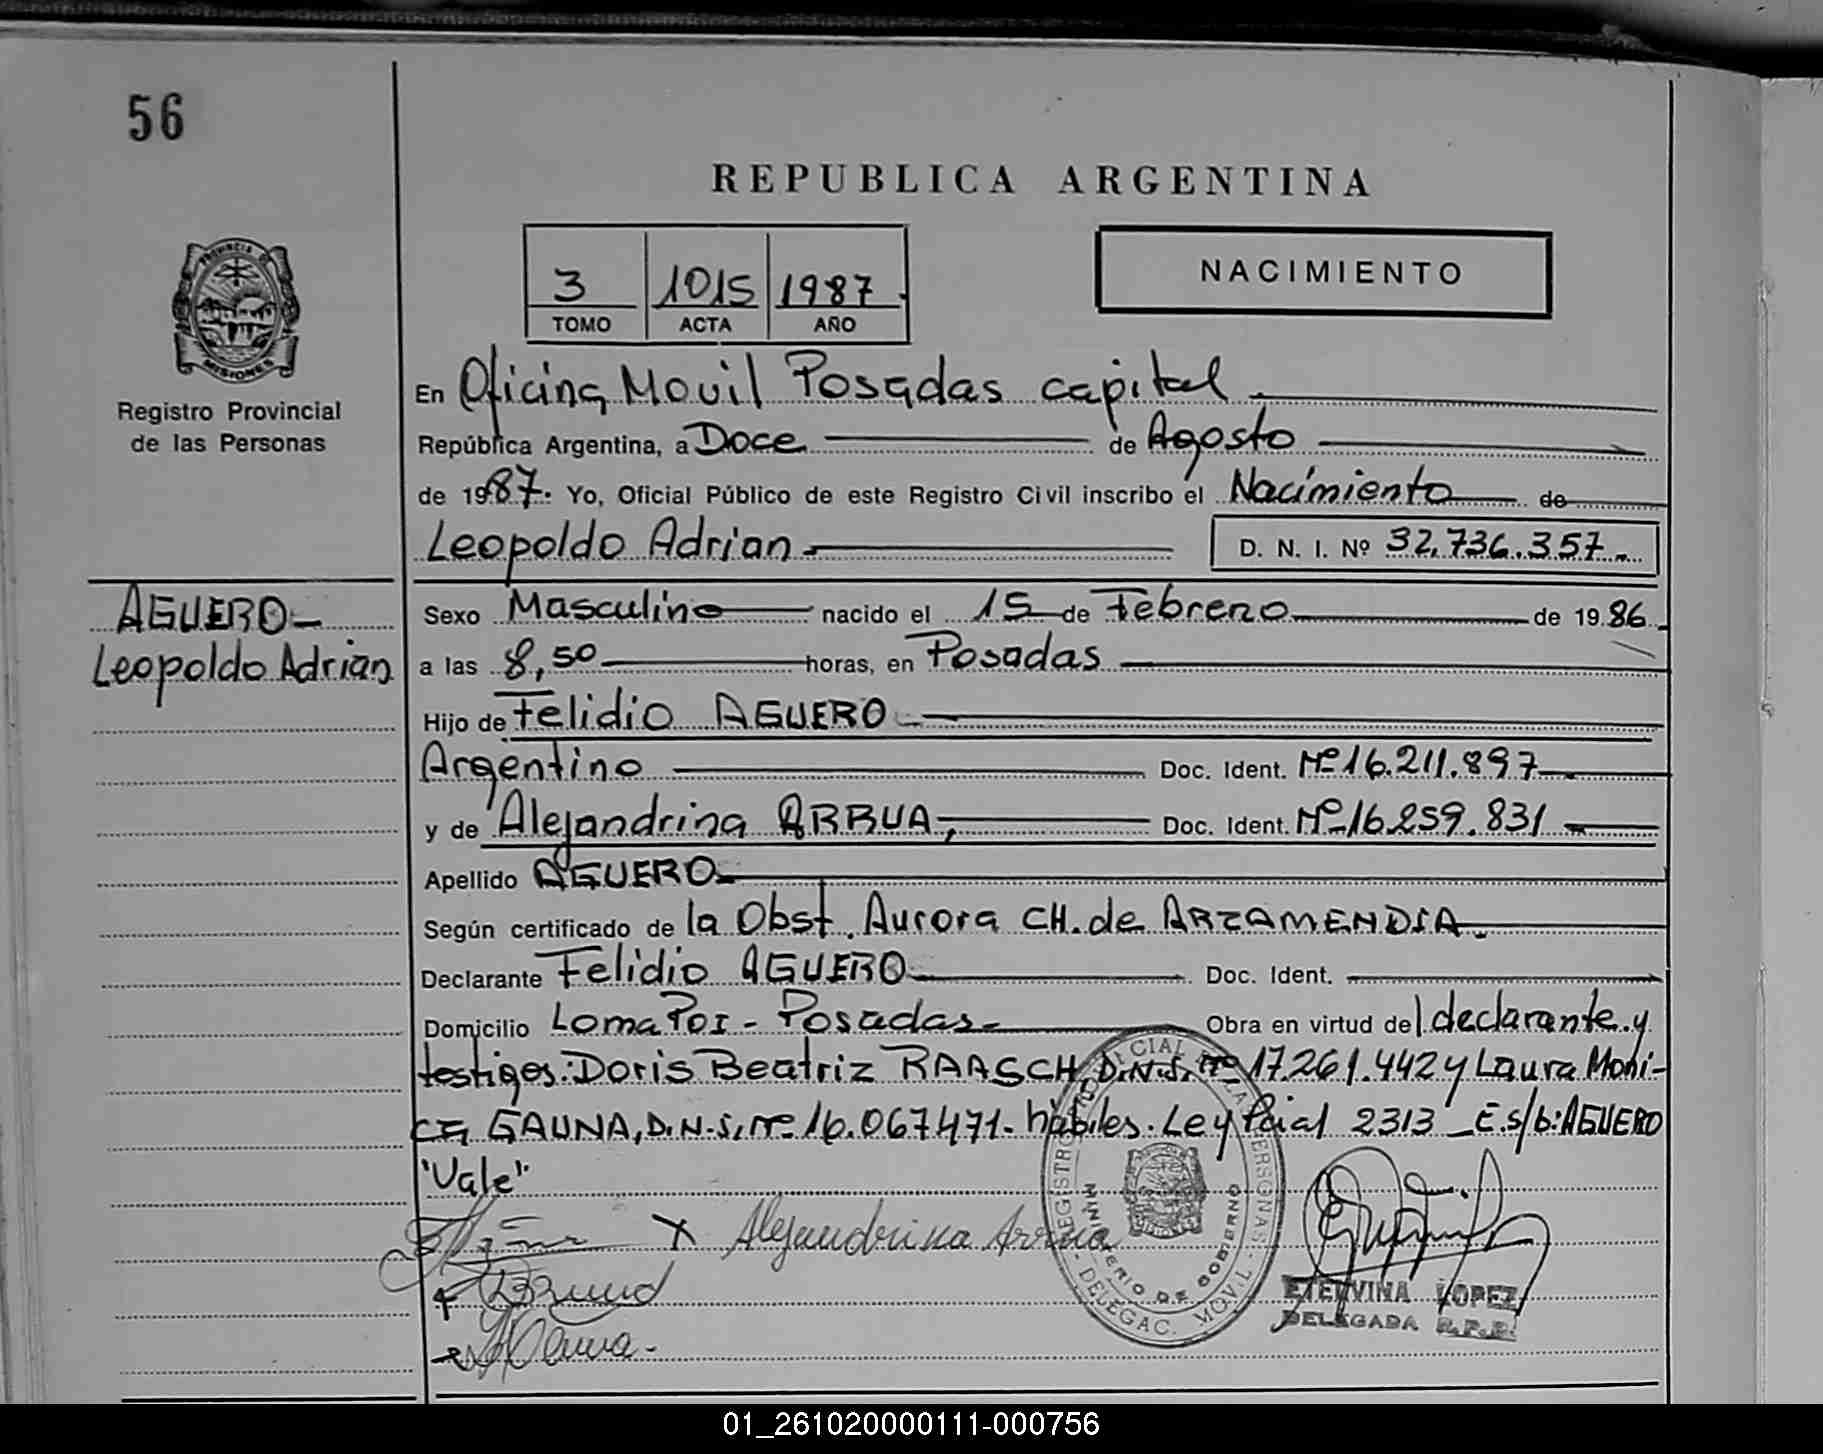 56
REPUBLICA ARGENTINA
3 1015 1987
TOMO ACTA AÑO
NACIMIENTO
PROVINCIA D
MISIONES
Registro Provincial
de las Personas
En Oficina Movil Posadas capital
República Argentina, a Doce de Agosto
de 1987. Yo, Oficial Público de este Registro Civil inscribo el Nacimiento de
Leopoldo Adrian D. N. I. Nº 32.736.357
AGUERO
Leopoldo Adrian
Sexo Masculino nacido el 15 de Febrero de 1986
a las 8,50 horas, en Posadas
Hijo de Felidio AGUERO
Argentino Doc. Ident. Nº 16.211.897
y de Alejandrina ARRUA, Doc. Ident. Nº 16.259.831
Apellido AGUERO
Según certificado de la Obst. Aurora CH. de ARZAMENDIA.
Declarante Felidio AGUERO Doc. Ident.
Domicilio Loma Poi - Posadas Obra en virtud del declarante y
testigos: Doris Beatriz RAASCH, D.N.I. nº 17.261.442 y Laura Moni-
ca GAUNA, D.N.I. nº 16.067471. hábiles. Ley Pcial 2313 E.s/b: AGUERO
"Vale".
X Alejandrina Arrua
REGISTRO PROVINCIAL DE LAS PERSONAS
MINISTERIO DE GOBIERNO
DELEGAC. MOVIL
ETELVINA LOPEZ
DELEGADA R.P.P.
01_261020000111-000756